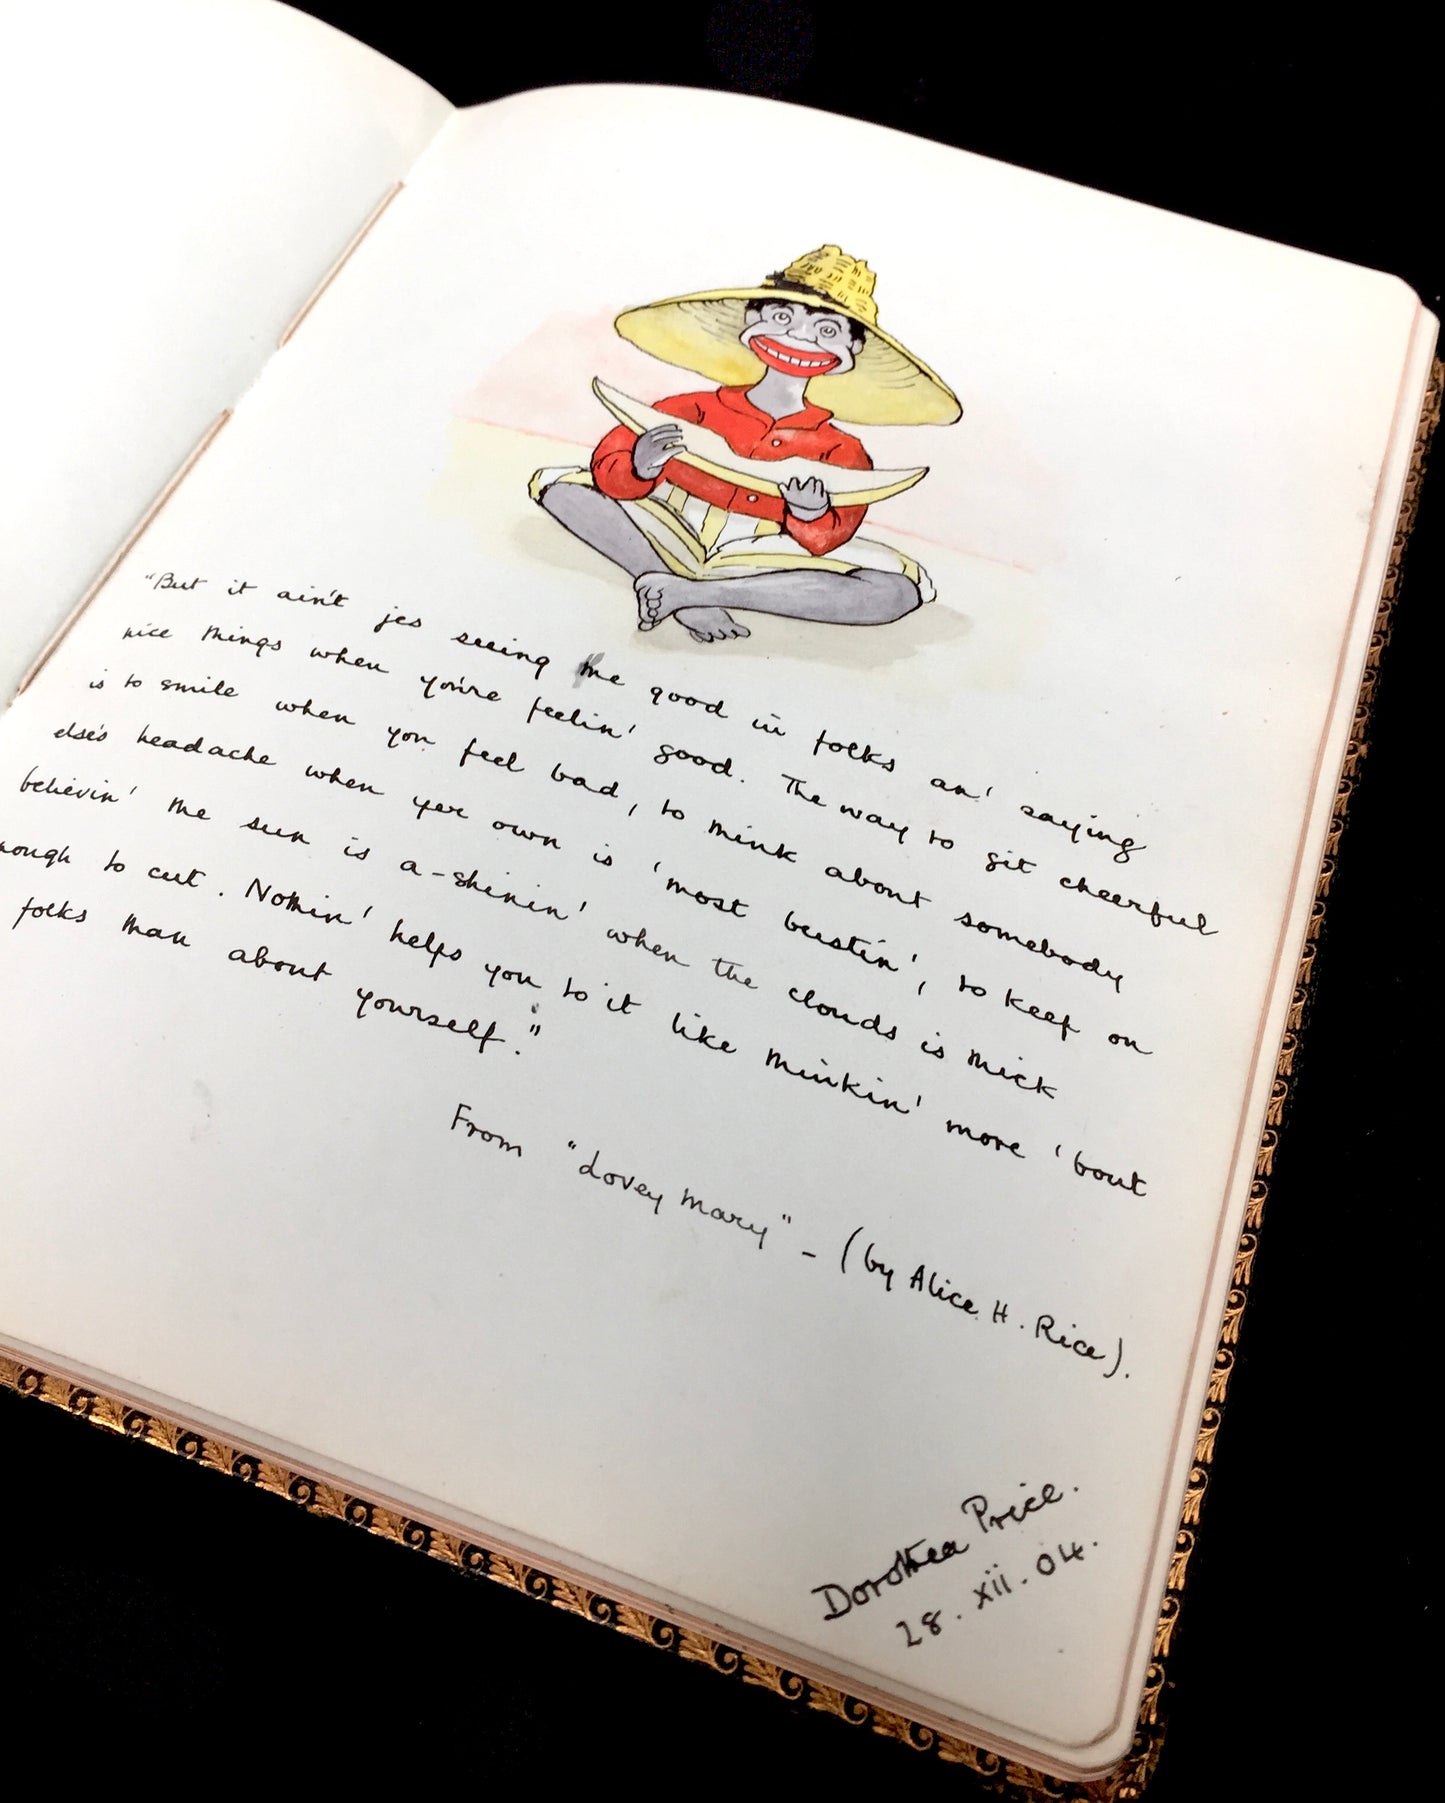 "But it ain't jes seeing the good in folks an' saying
nice things when you're feelin' good. The way to git cheerful
is to smile when you feel bad, to think about somebody
else's headache when yer own is 'most bustin', to keep on
believin' the sun is a-shinin' when the clouds is thick
nough to cut. Nothin' helps you to it like thinkin' more 'bout
folks than about yourself."
From "Lovey Mary" - (by Alice H. Rice).
Dorothea Price.
28. xii. 04.